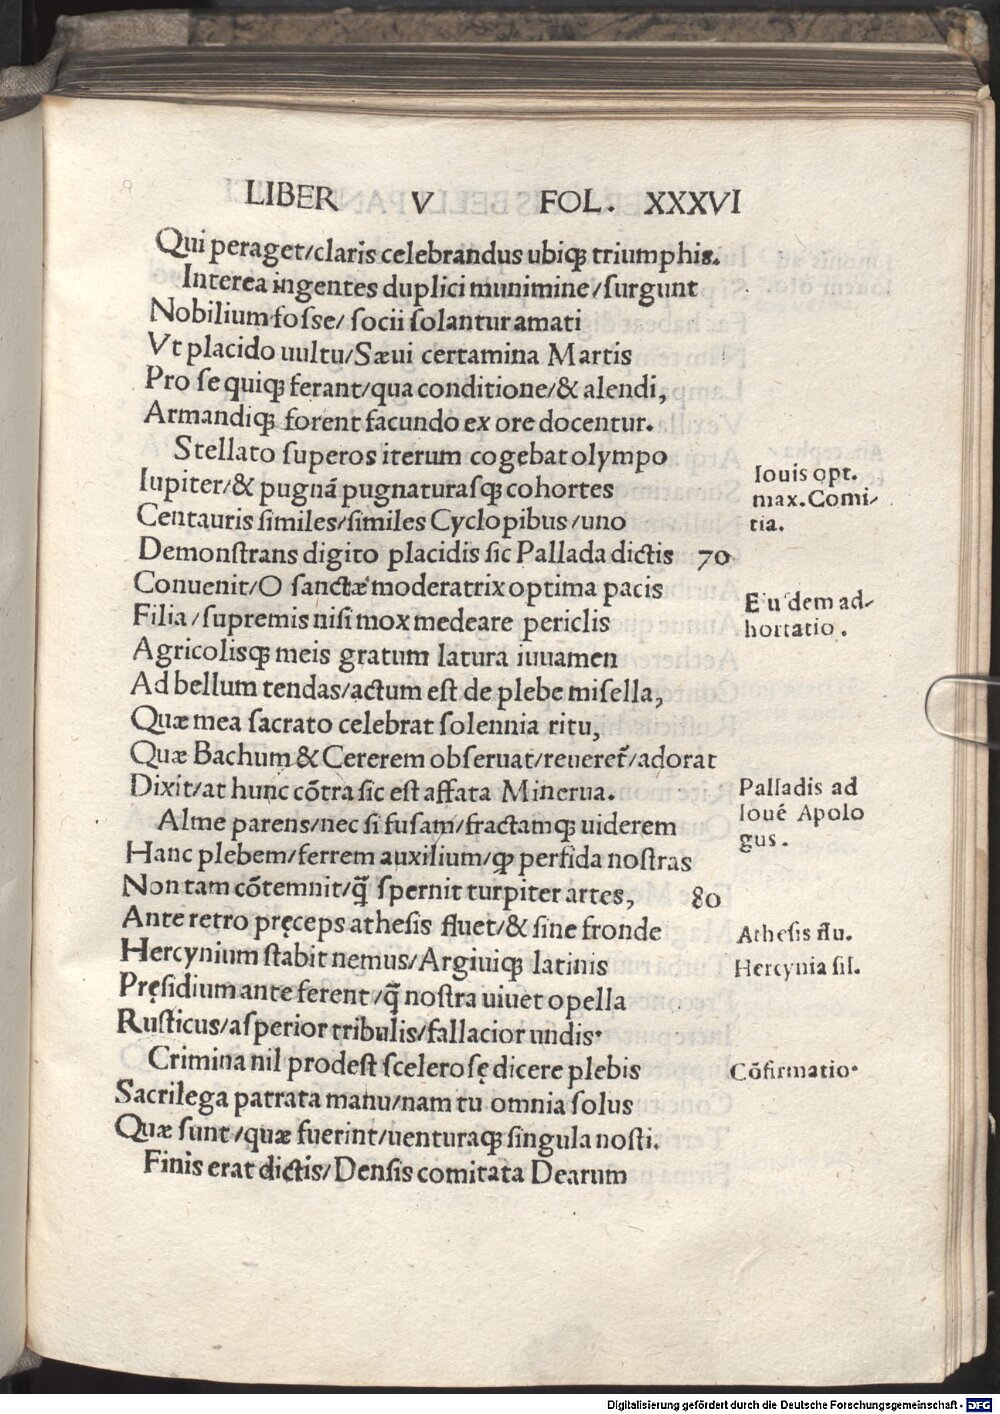 LIBER V FOL. XXXVI
Qui peraget/claris celebrandus ubiqꝫ triumphis.
Interea ingentes duplici munimine/surgunt
Nobilium fosse/ socii solantur amati
Vt placido uultu/Sæui certamina Martis
Pro se quiqꝫ ferant/qua conditione/& alendi,
Armandiqꝫ forent facundo ex ore docentur.
Stellato superos iterum cogebat olympo
Iupiter/& pugnã pugnaturasqꝫ cohortes
Iouis opt.
max. Comi-
tia.
Centauris similes/similes Cyclopibus/uno
Demonstrans digito placidis sic Pallada dictis 70
Conuenit/O sanctæ moderatrix optima pacis
Filia/supremis nisi mox medeare periclis
Eiudem ad-
hortatio.
Agricolisqꝫ meis gratum latura iuuamen
Ad bellum tendas/actum est de plebe misella,
Quæ mea sacrato celebrat solennia ritu,
Quæ Bachum & Cererem obseruat/reueret̃/adorat
Dixit/at hunc cõtra sic est affata Minerua.
Palladis ad
Ioué Apolo
gus.
Alme parens/nec si fusam/fractamqꝫ uiderem
Hanc plebem/ferrem auxilium/ꝙ perfida nostras
Non tam cõtemnit/q̃ spernit turpiter artes, 80
Ante retro pręceps athesis fluet/& sine fronde
Athesis flu.
Hercynium stabit nemus/Argiuiqꝫ latinis
Hercynia sil.
Pręsidium ante ferent/q̃ nostra uiuet opella
Rusticus/asperior tribulis/fallacior undis·
Crimina nil prodest scelerosę dicere plebis
Cõfirmatio·
Sacrilega patrata manu/nam tu omnia solus
Quæ sunt/quæ fuerint/uenturaqꝫ singula nosti.
Finis erat dictis/Densis comitata Dearum
Digitalisierung gefördert durch die Deutsche Forschungsgemeinschaft - DFG